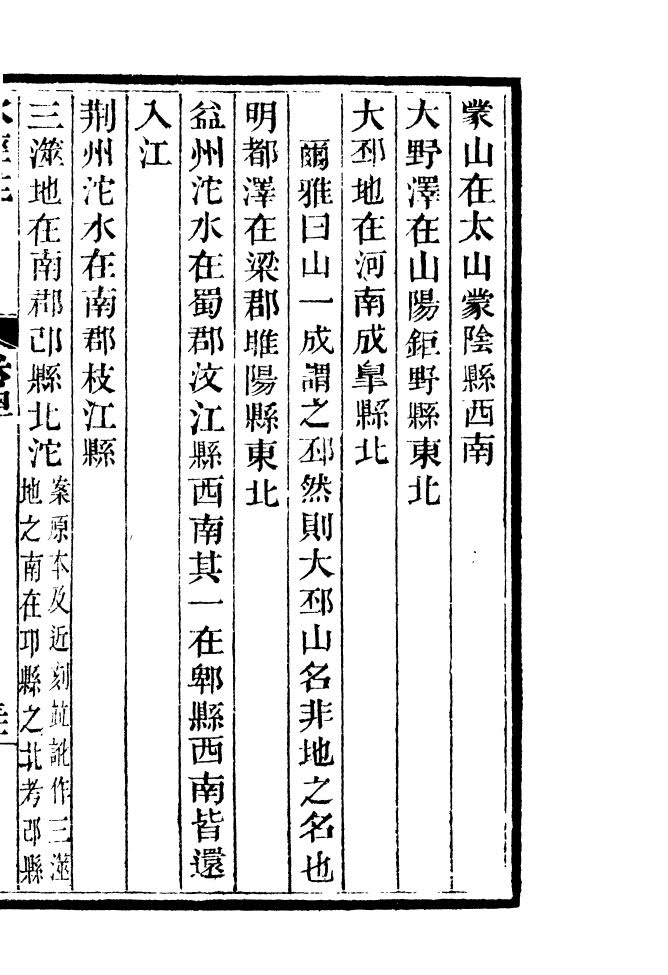 蒙山在太山蒙陰縣西南
大野澤在山陽鉅野縣東北
大邳地在河南成臯縣北
爾雅曰山一成謂之邳然則大邳山名非地之名也
明都澤在梁郡睢陽縣東北
益州沱水在蜀郡汶江縣西南其一在郫縣西南皆還
入江
荆州沱水在南郡枝江縣
三澨地在南郡邔縣北沱
案原本及近刻竝訛作三澨
地之南在邛縣之北考邔縣